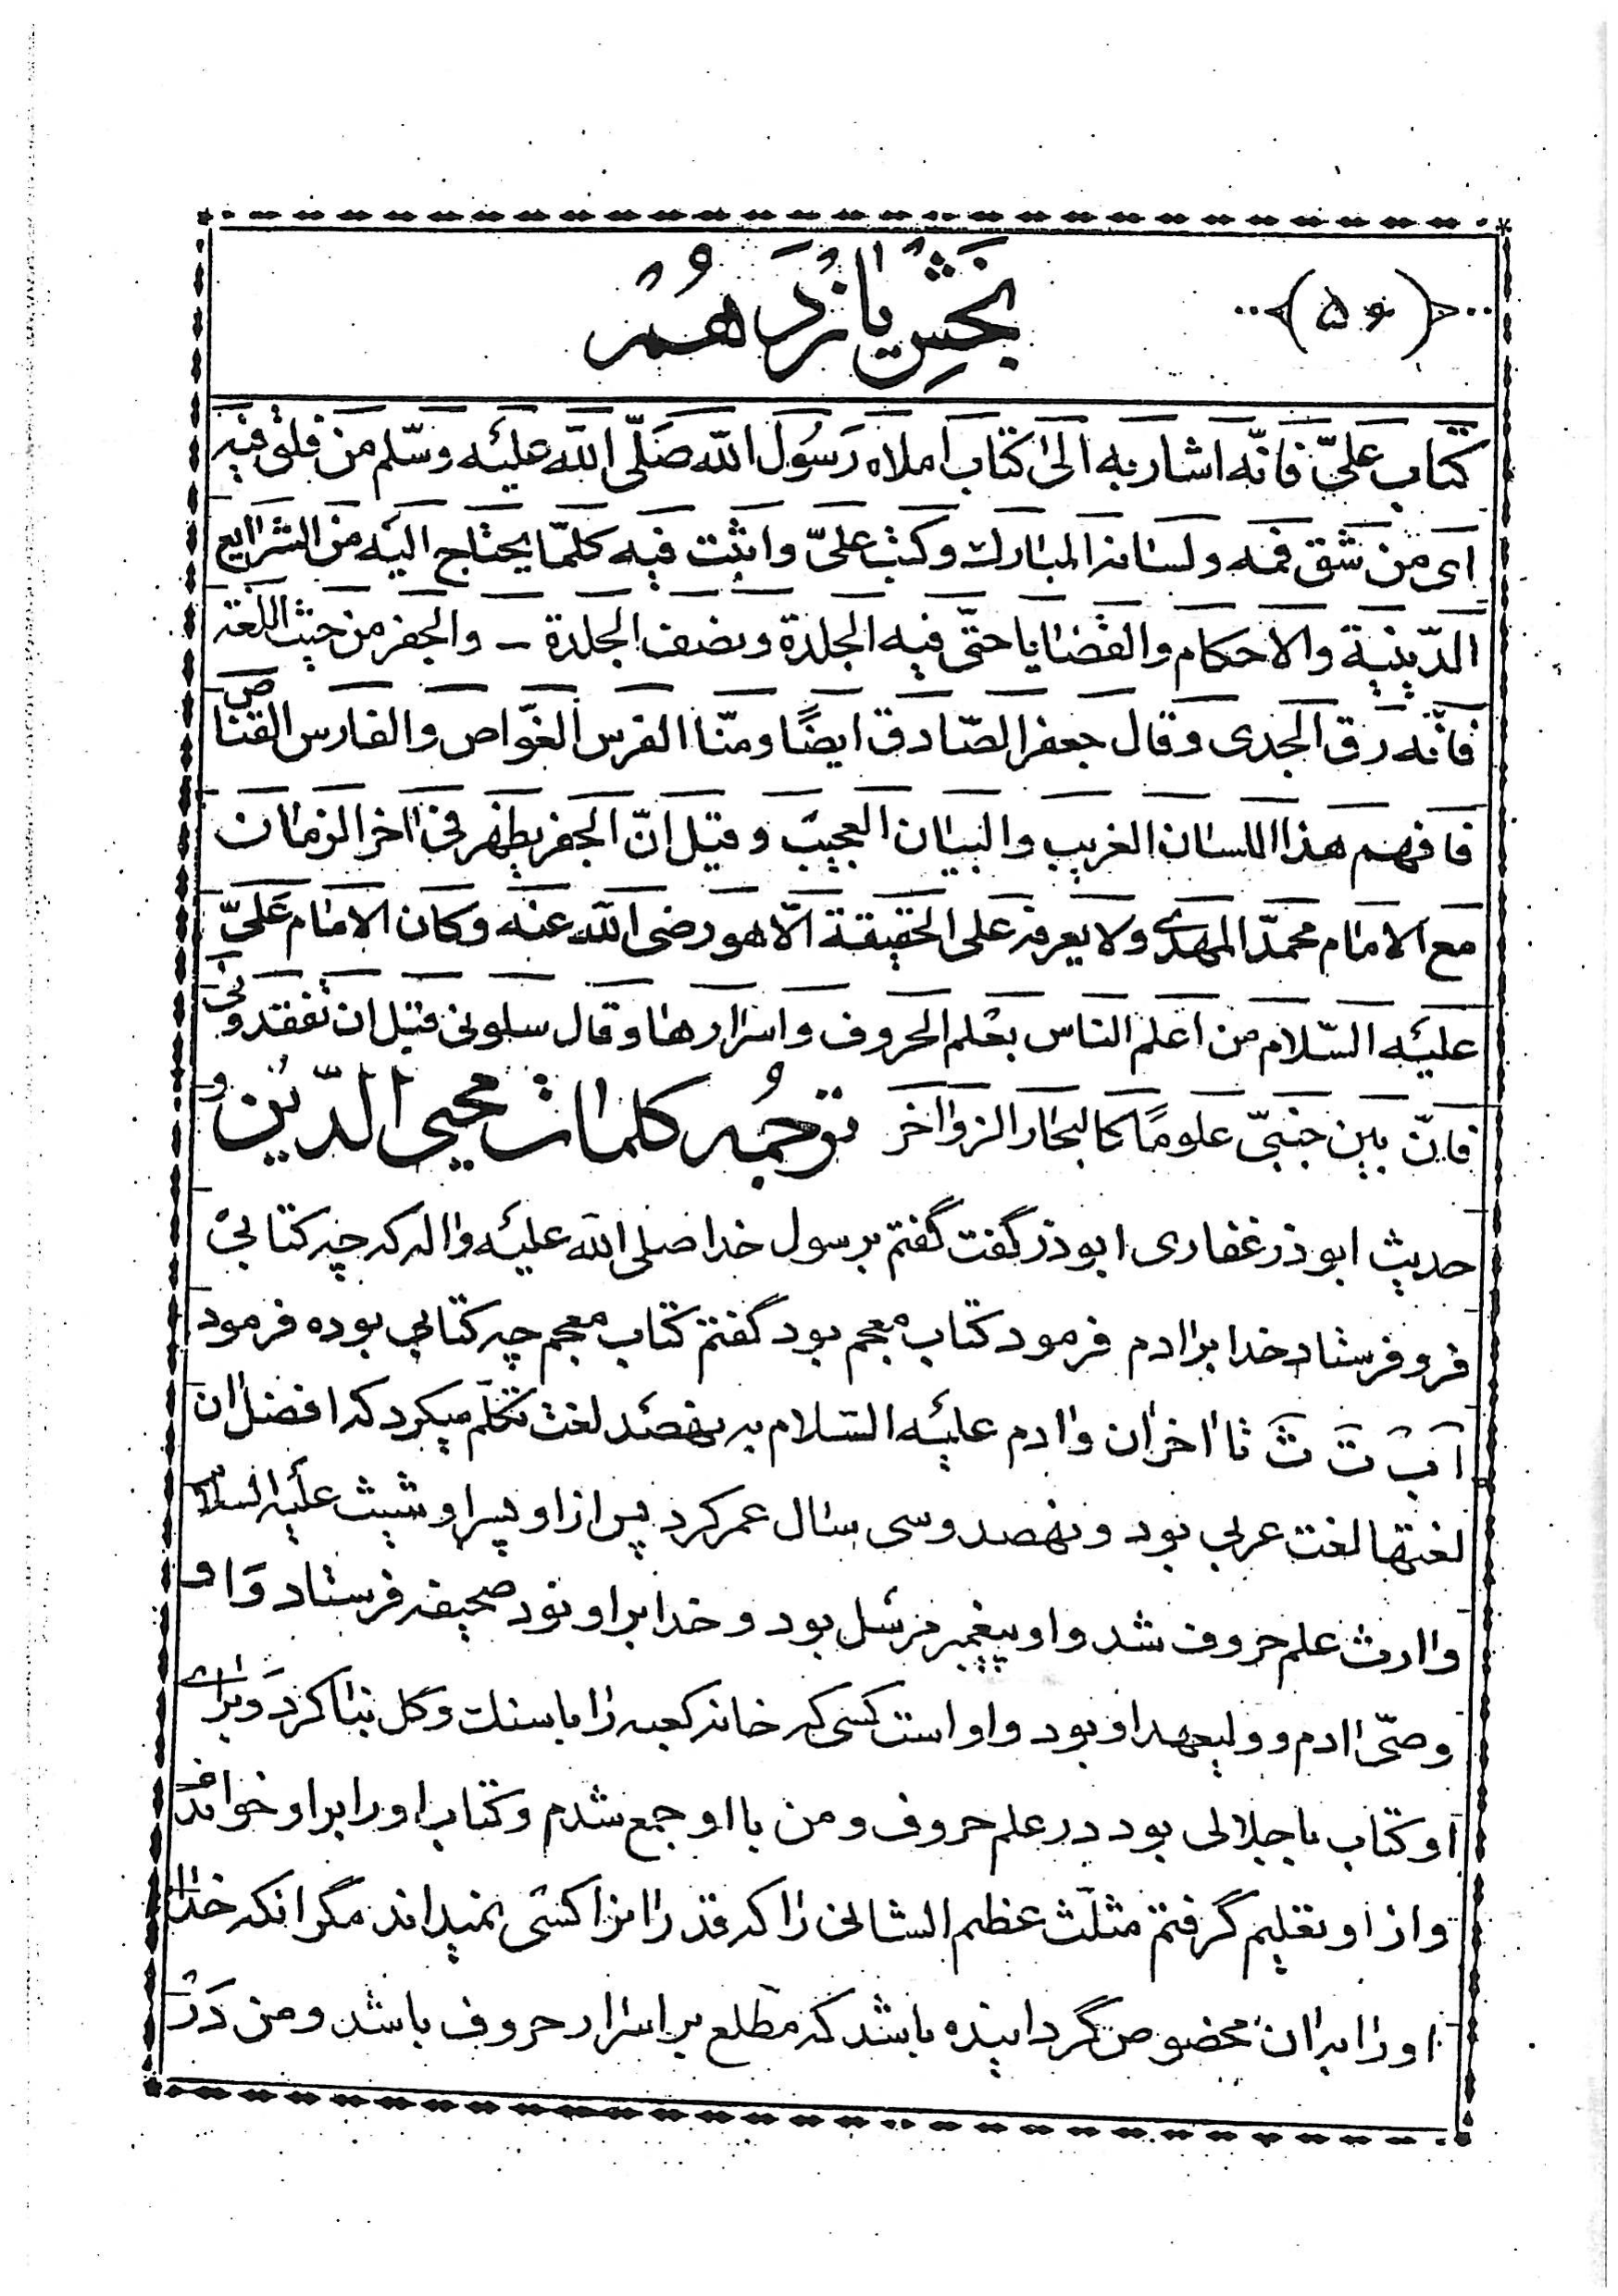 ﴿۵۶﴾
بَخشِ یازدَهُم
کتاب علیّ فانّه اشار به الی کتاب املاه رَسُول اللّه صَلّی اللّه علیه وسّلم من فلق فیه
ای من شق فمه ولسانه المبارك وکتب علیّ واثبت فیه کلمّا یحتاج الیه من الشرایع
الدّینیة والاحکام والقضایا حتّی فیه الجلدة ونصف الجلدة ــ والجفر من حیث اللغة
فانّه رق الجدی وقال جعفر الصّادق ایضًا ومنّا الفرس الغوّاص والفارس القنّاص
فافهم هذا اللسان الغریب والبیان العجیب وقیل انّ الجفر یظهر فی اخر الزمان
مع الامام محمدّ المهدی ولا یعرفه علی الحقیقة الّا هو رضی اللّه عنه وکان الامام علیّ
علیه السّلام من اعلم الناس بعلم الحروف واسرارها وقال سلونی قبل ان تفقدونی
فانّ بین جنبیّ علومًا کالبحار الزواخر ترجمُه کلمات محیی الدّین و
حدیث ابوذر غفاری ابوذر گفت گفتم برسول خدا صلی اللّه علیه واله که چه کتابی
فرو فرستاد خدا بر ادم فرمود کتاب معجم بود گفتم کتاب معجم چه کتابی بوده فرمود
اَ بَ تَ ثَ تا اخر ان وادم علیه السّلام به نهصد لغت تکلّم میکرد که افضل ان
لغتها لغت عربی بود ونهصد وسی سال عمر کرد پس از او پسر او شیث علیه السلام
وارث علم حروف شد واو پیغمبر مرسل بود وخدا بر او نود صحیفه فرستاد وَاو
وصّی ادم و ولیعهد او بود واو است کسی که خانه کعبه را با سنك وگل بنا کرد وَبرای
او کتاب با جلالی بود در علم حروف ومن با او جمع شدم وکتاب او را بر او خواندم
واز او تعلیم گرفتم مثلّث عظیم الشانی را که قدر انرا کسی نمیداند مگر انکه خدا
او را بران مخصوص گردانیده باشد که مطّلع بر اسرار حروف باشد ومن دَر